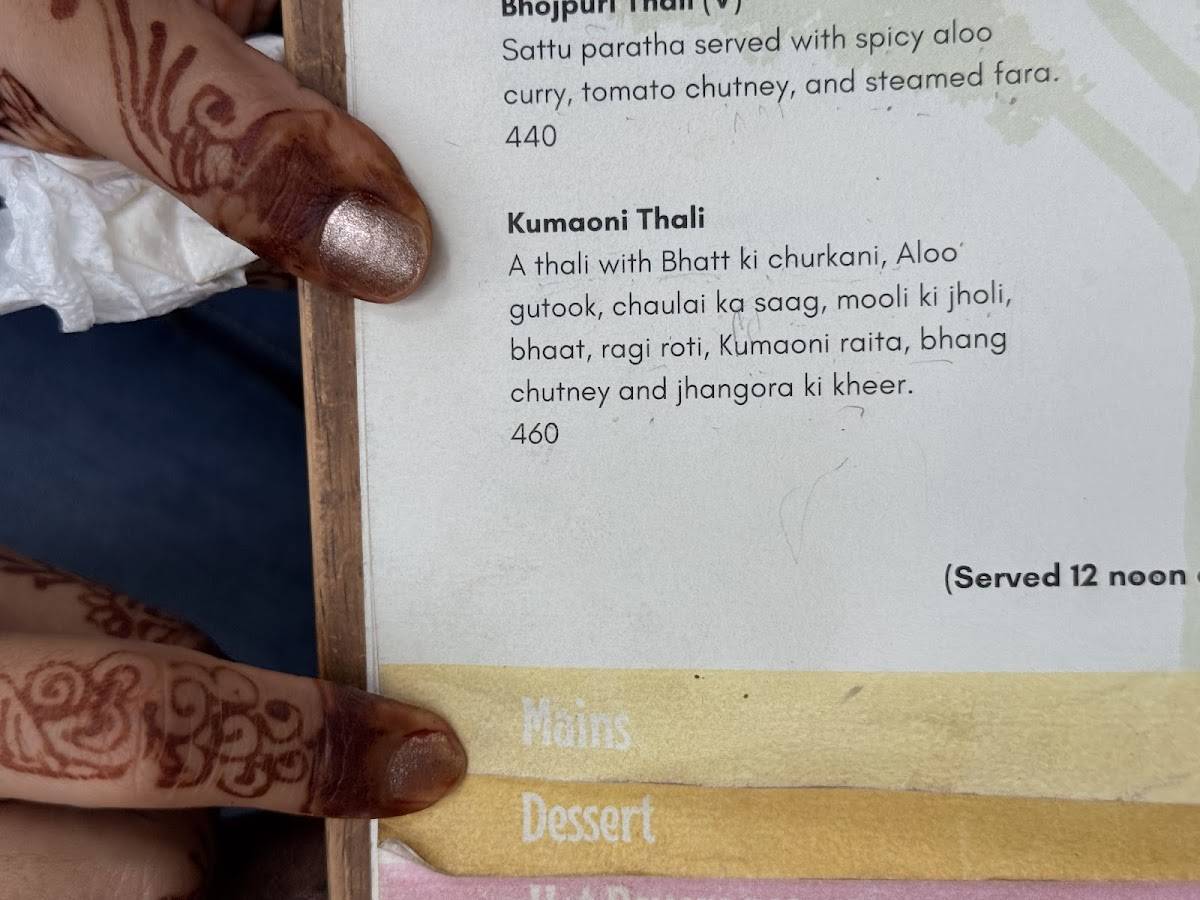 Bhojpuri Thali (V)
Sattu paratha served with spicy aloo
curry, tomato chutney, and steamed fara.
440
Kumaoni Thali
A thali with Bhatt ki churkani, Aloo
gutook, chaulai ka saag, mooli ki jholi,
bhaat, ragi roti, Kumaoni raita, bhang
chutney and jhangora ki kheer.
460
(Served 12 noon
Mains
Dessert